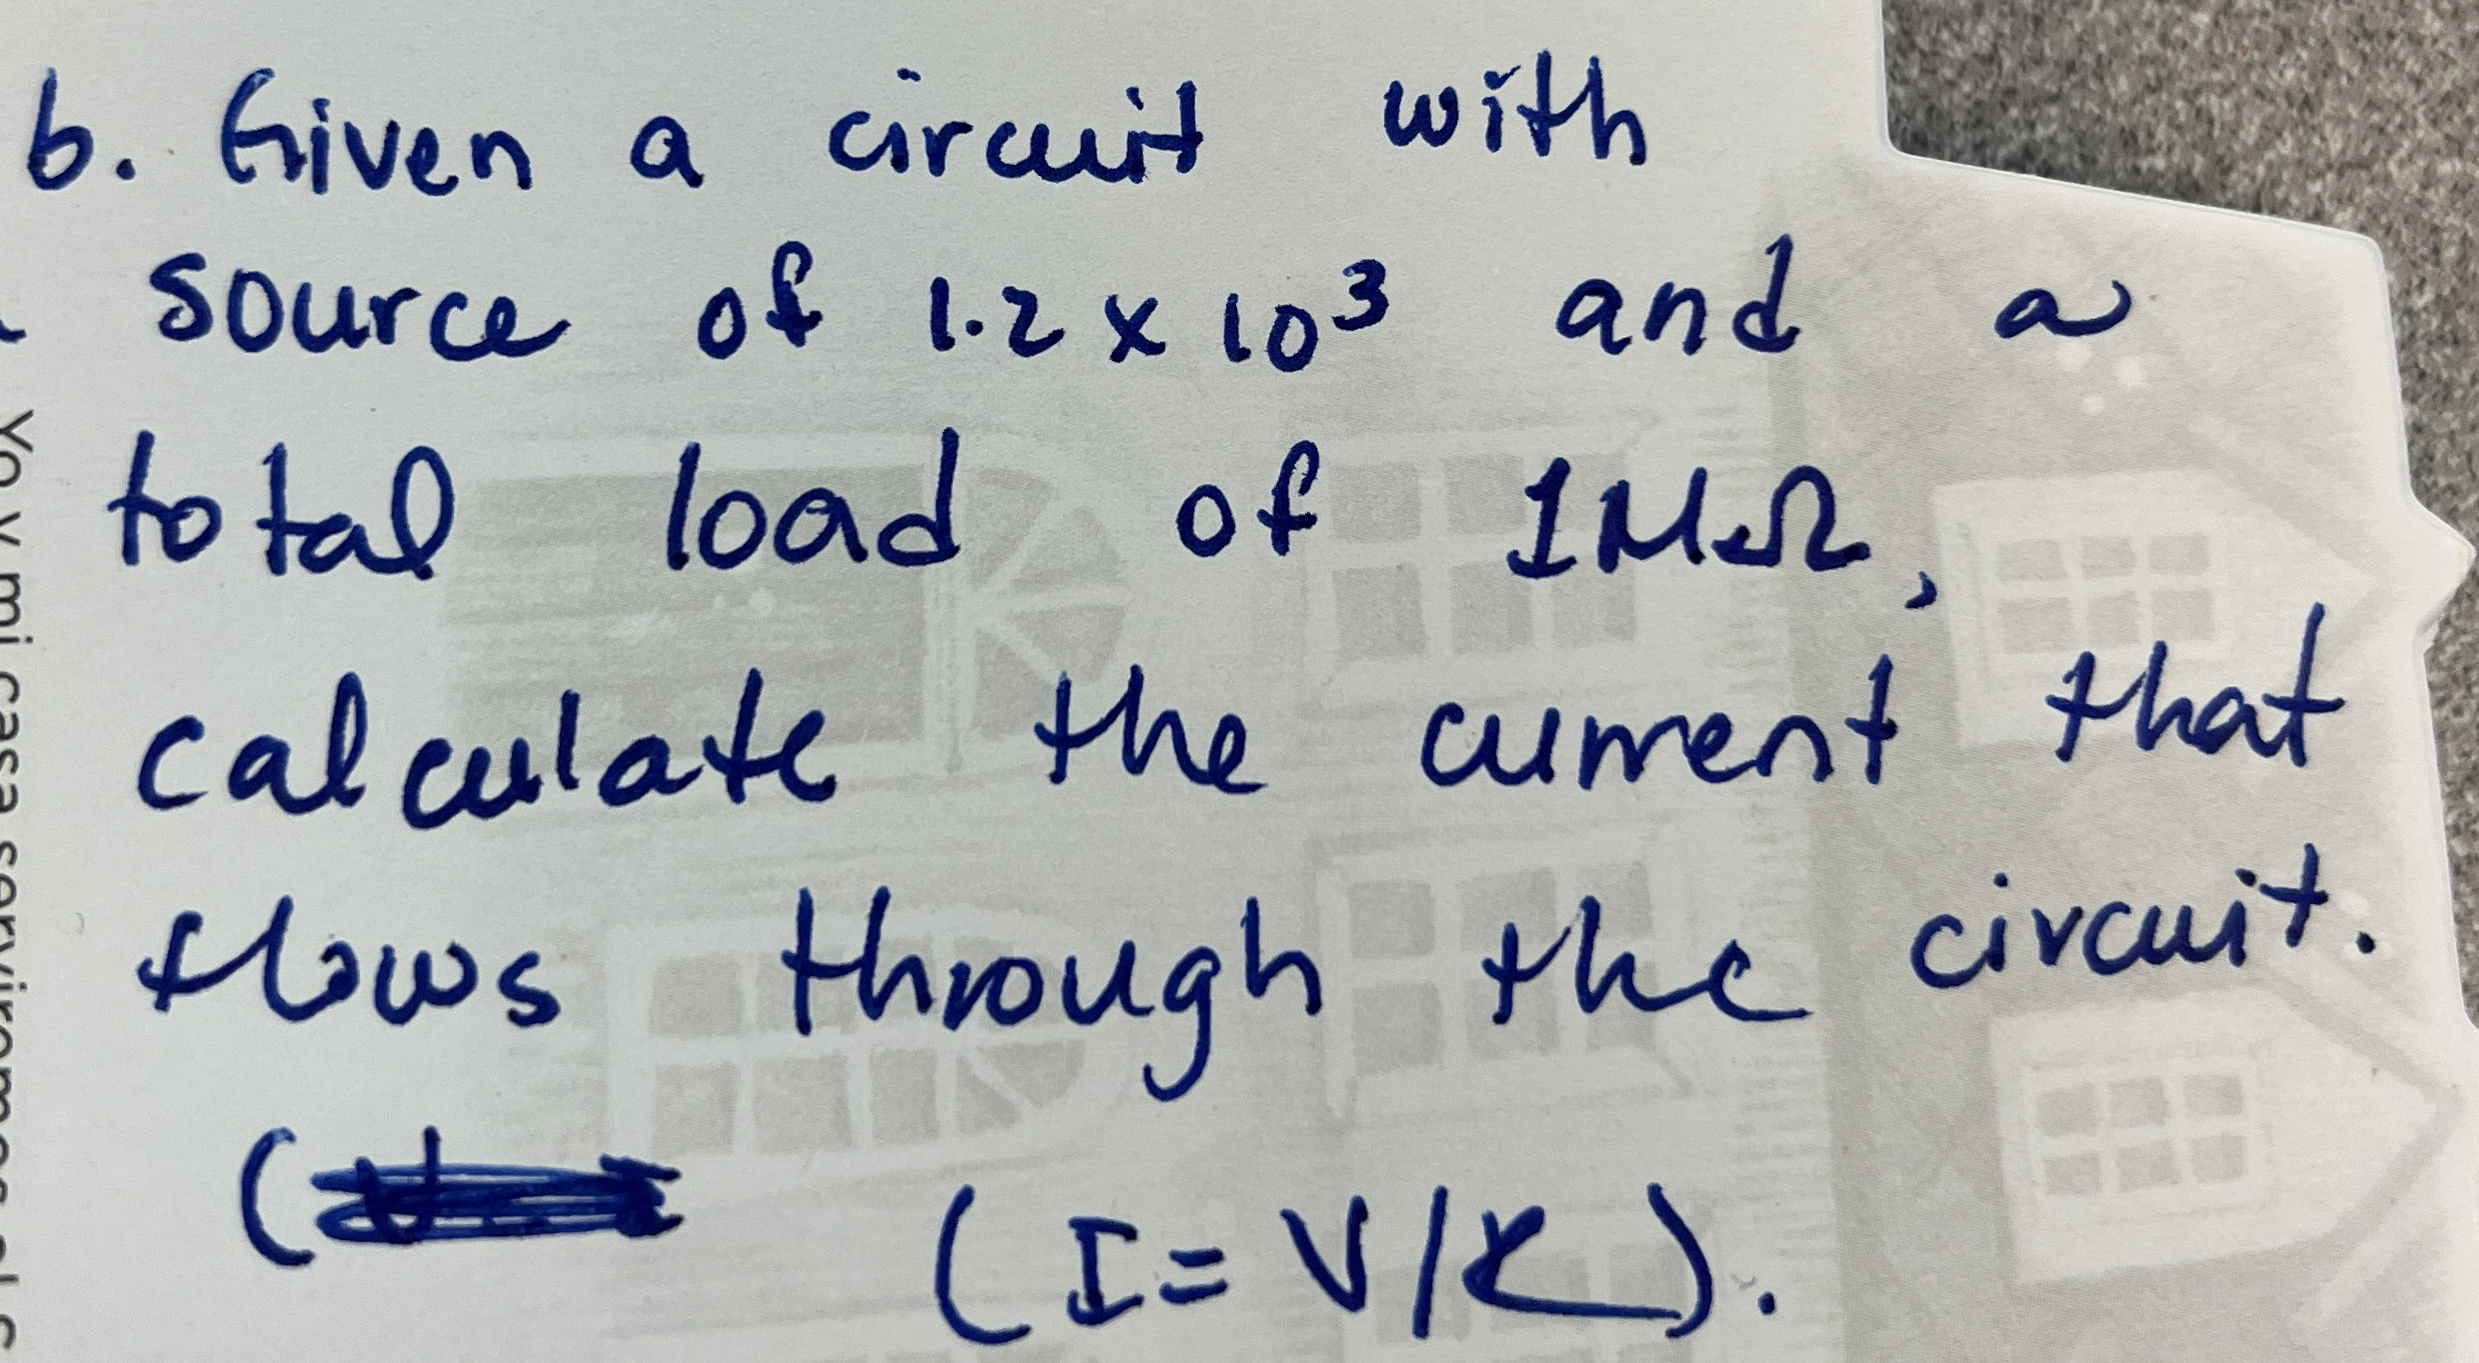 b. Given a circuit with
source of 1.2 x 10³ and a
total load of 1MΩ,
calculate the current that
flows through the circuit.
(
(I = V/R).
Yo y mi casa serviremos al S